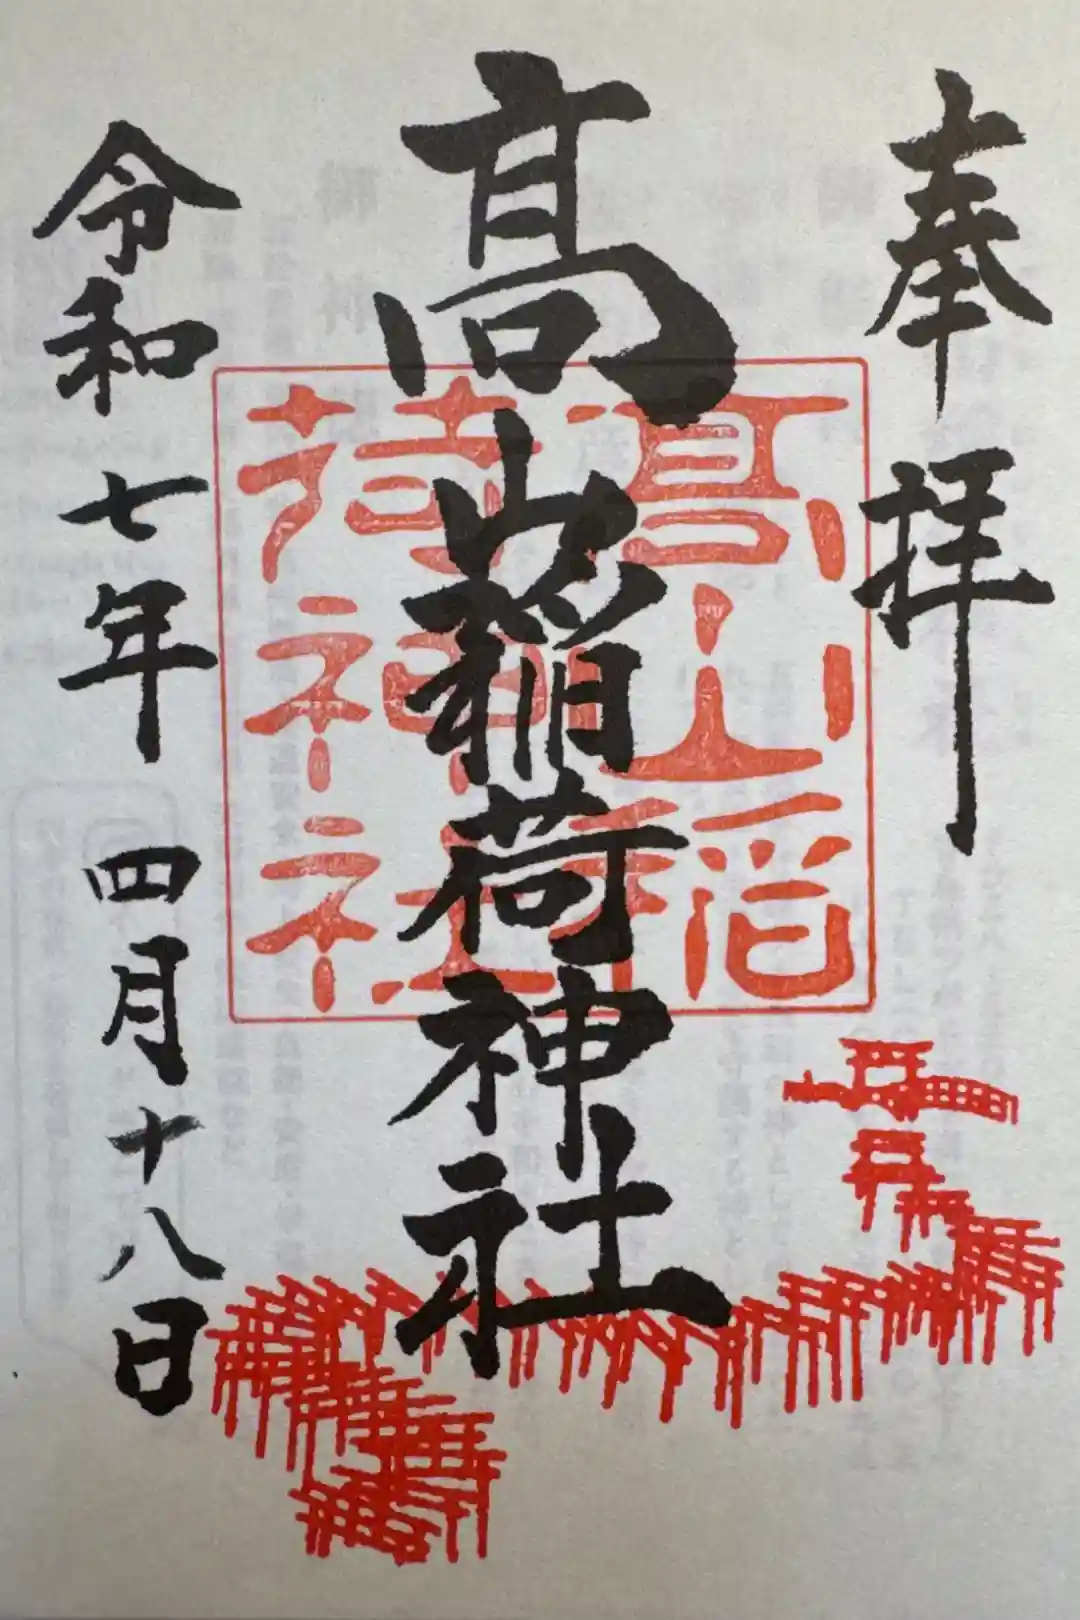 奉拝
髙山稲荷神社
髙山稲
荷神社
令和七年四月十八日